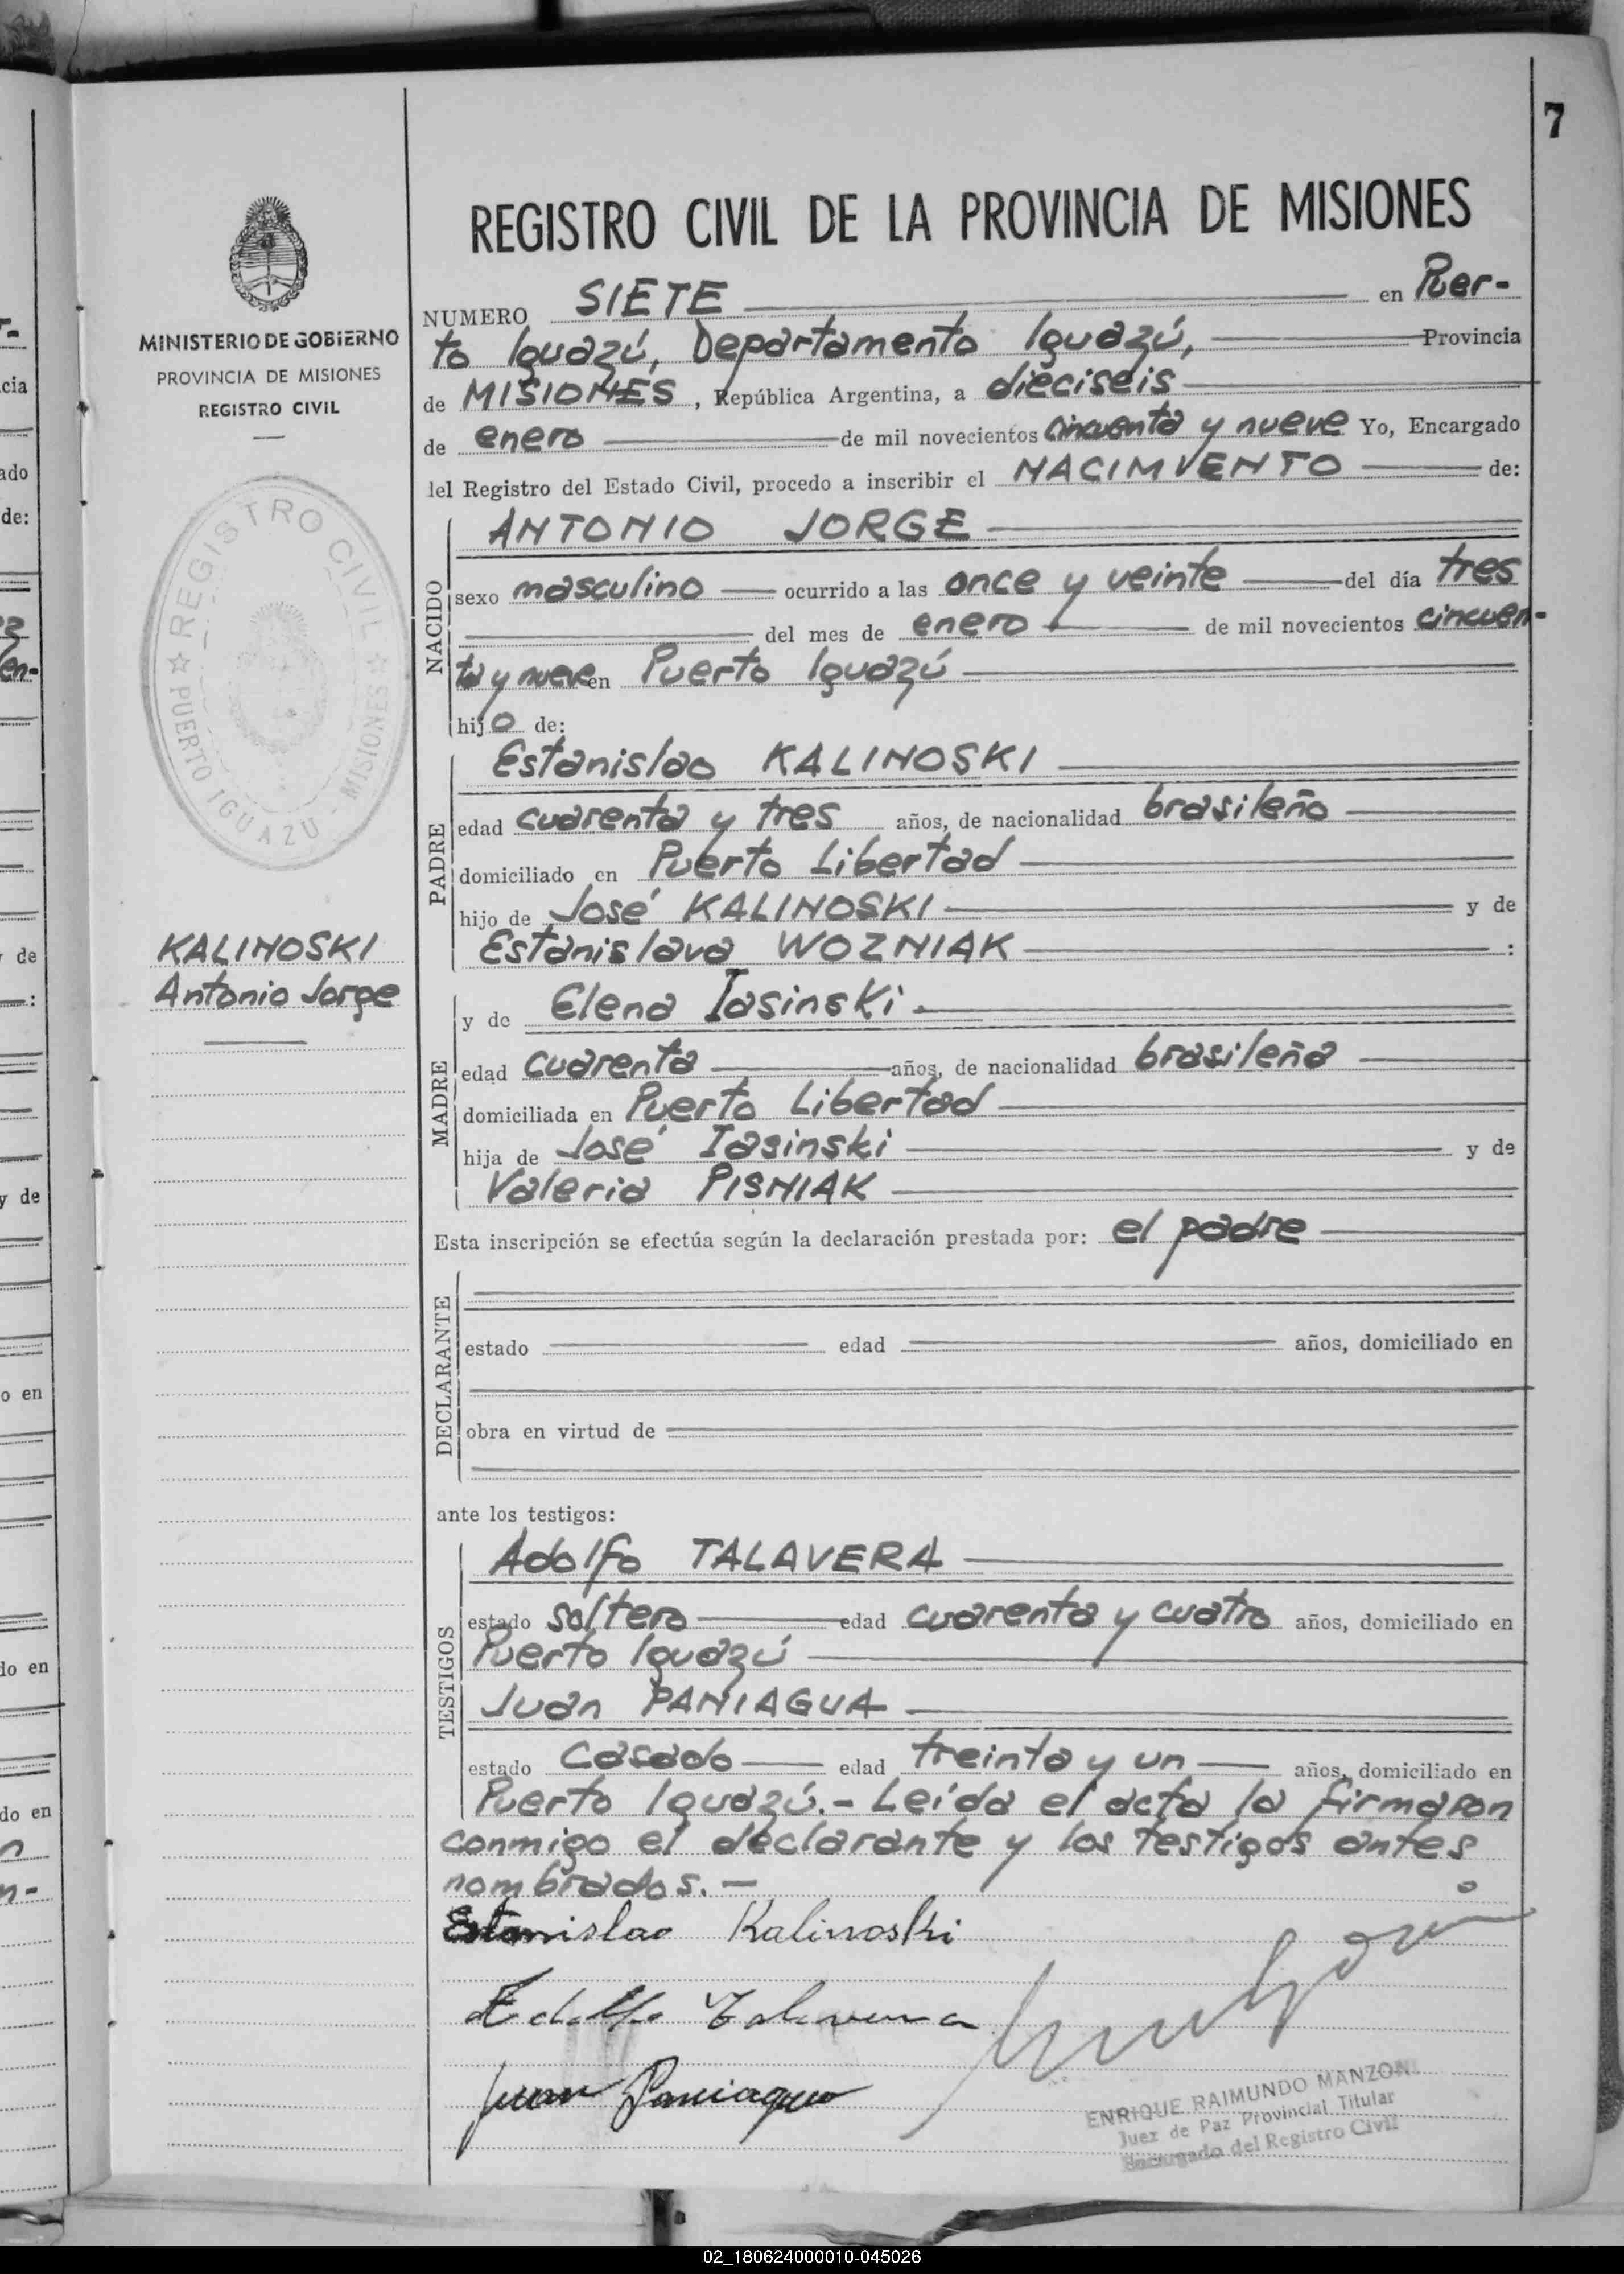 7
MINISTERIO DE GOBIERNO
PROVINCIA DE MISIONES
REGISTRO CIVIL
REGISTRO CIVIL
PUERTO IGUAZU - MISIONES
KALINOSKI
Antonio Jorge
REGISTRO CIVIL DE LA PROVINCIA DE MISIONES
NUMERO SIETE en Puer-
to Iguazú, Departamento Iguazú, Provincia
de MISIONES, República Argentina, a dieciseis
de enero de mil novecientos cincuenta y nueve Yo, Encargado
del Registro del Estado Civil, procedo a inscribir el NACIMIENTO de:
NACIDO
ANTONIO JORGE
sexo masculino ocurrido a las once y veinte del día tres
del mes de enero de mil novecientos cincuen-
ta y nueve en Puerto Iguazú
hijo de:
PADRE
Estanislao KALINOSKI
edad cuarenta y tres años, de nacionalidad brasileño
domiciliado en Puerto Libertad
hijo de José KALINOSKI y de
Estanislava WOZNIAK :
MADRE
y de Elena Iasinski
edad cuarenta años, de nacionalidad brasileña
domiciliada en Puerto Libertad
hija de José Iasinski y de
Valeria PISNIAK
Esta inscripción se efectúa según la declaración prestada por: el padre
DECLARANTE
estado edad años, domiciliado en
obra en virtud de
ante los testigos:
TESTIGOS
Adolfo TALAVERA
estado soltero edad cuarenta y cuatro años, domiciliado en
Puerto Iguazú
Juan PANIAGUA
estado casado edad treinta y un años, domiciliado en
Puerto Iguazú.- Leída el acta la firmaron
conmigo el declarante y los testigos antes
nombrados.-
Estanislao Kalinoski
Adolfo Talavera
Juan Paniagua
ENRIQUE RAIMUNDO MANZONI
Juez de Paz Provincial Titular
Encargado del Registro Civil
02_180624000010-045026